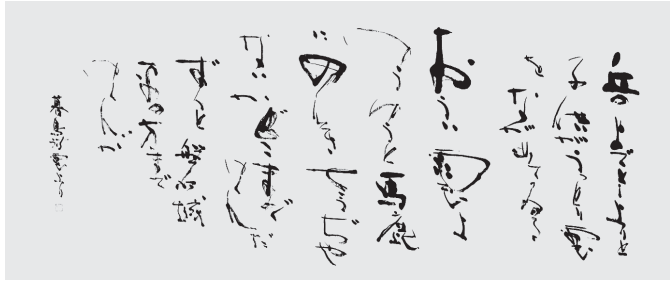 丘の上でとしよりと
子供とうつとりと雲
をながめてゐる
おうい雲よ
ゆうゆうと馬鹿
にのんきさうぢや
ないかどこまでゆくんだ
ずつと磐城
平の方まで
ゆくんか
暮鳥詩 雲より